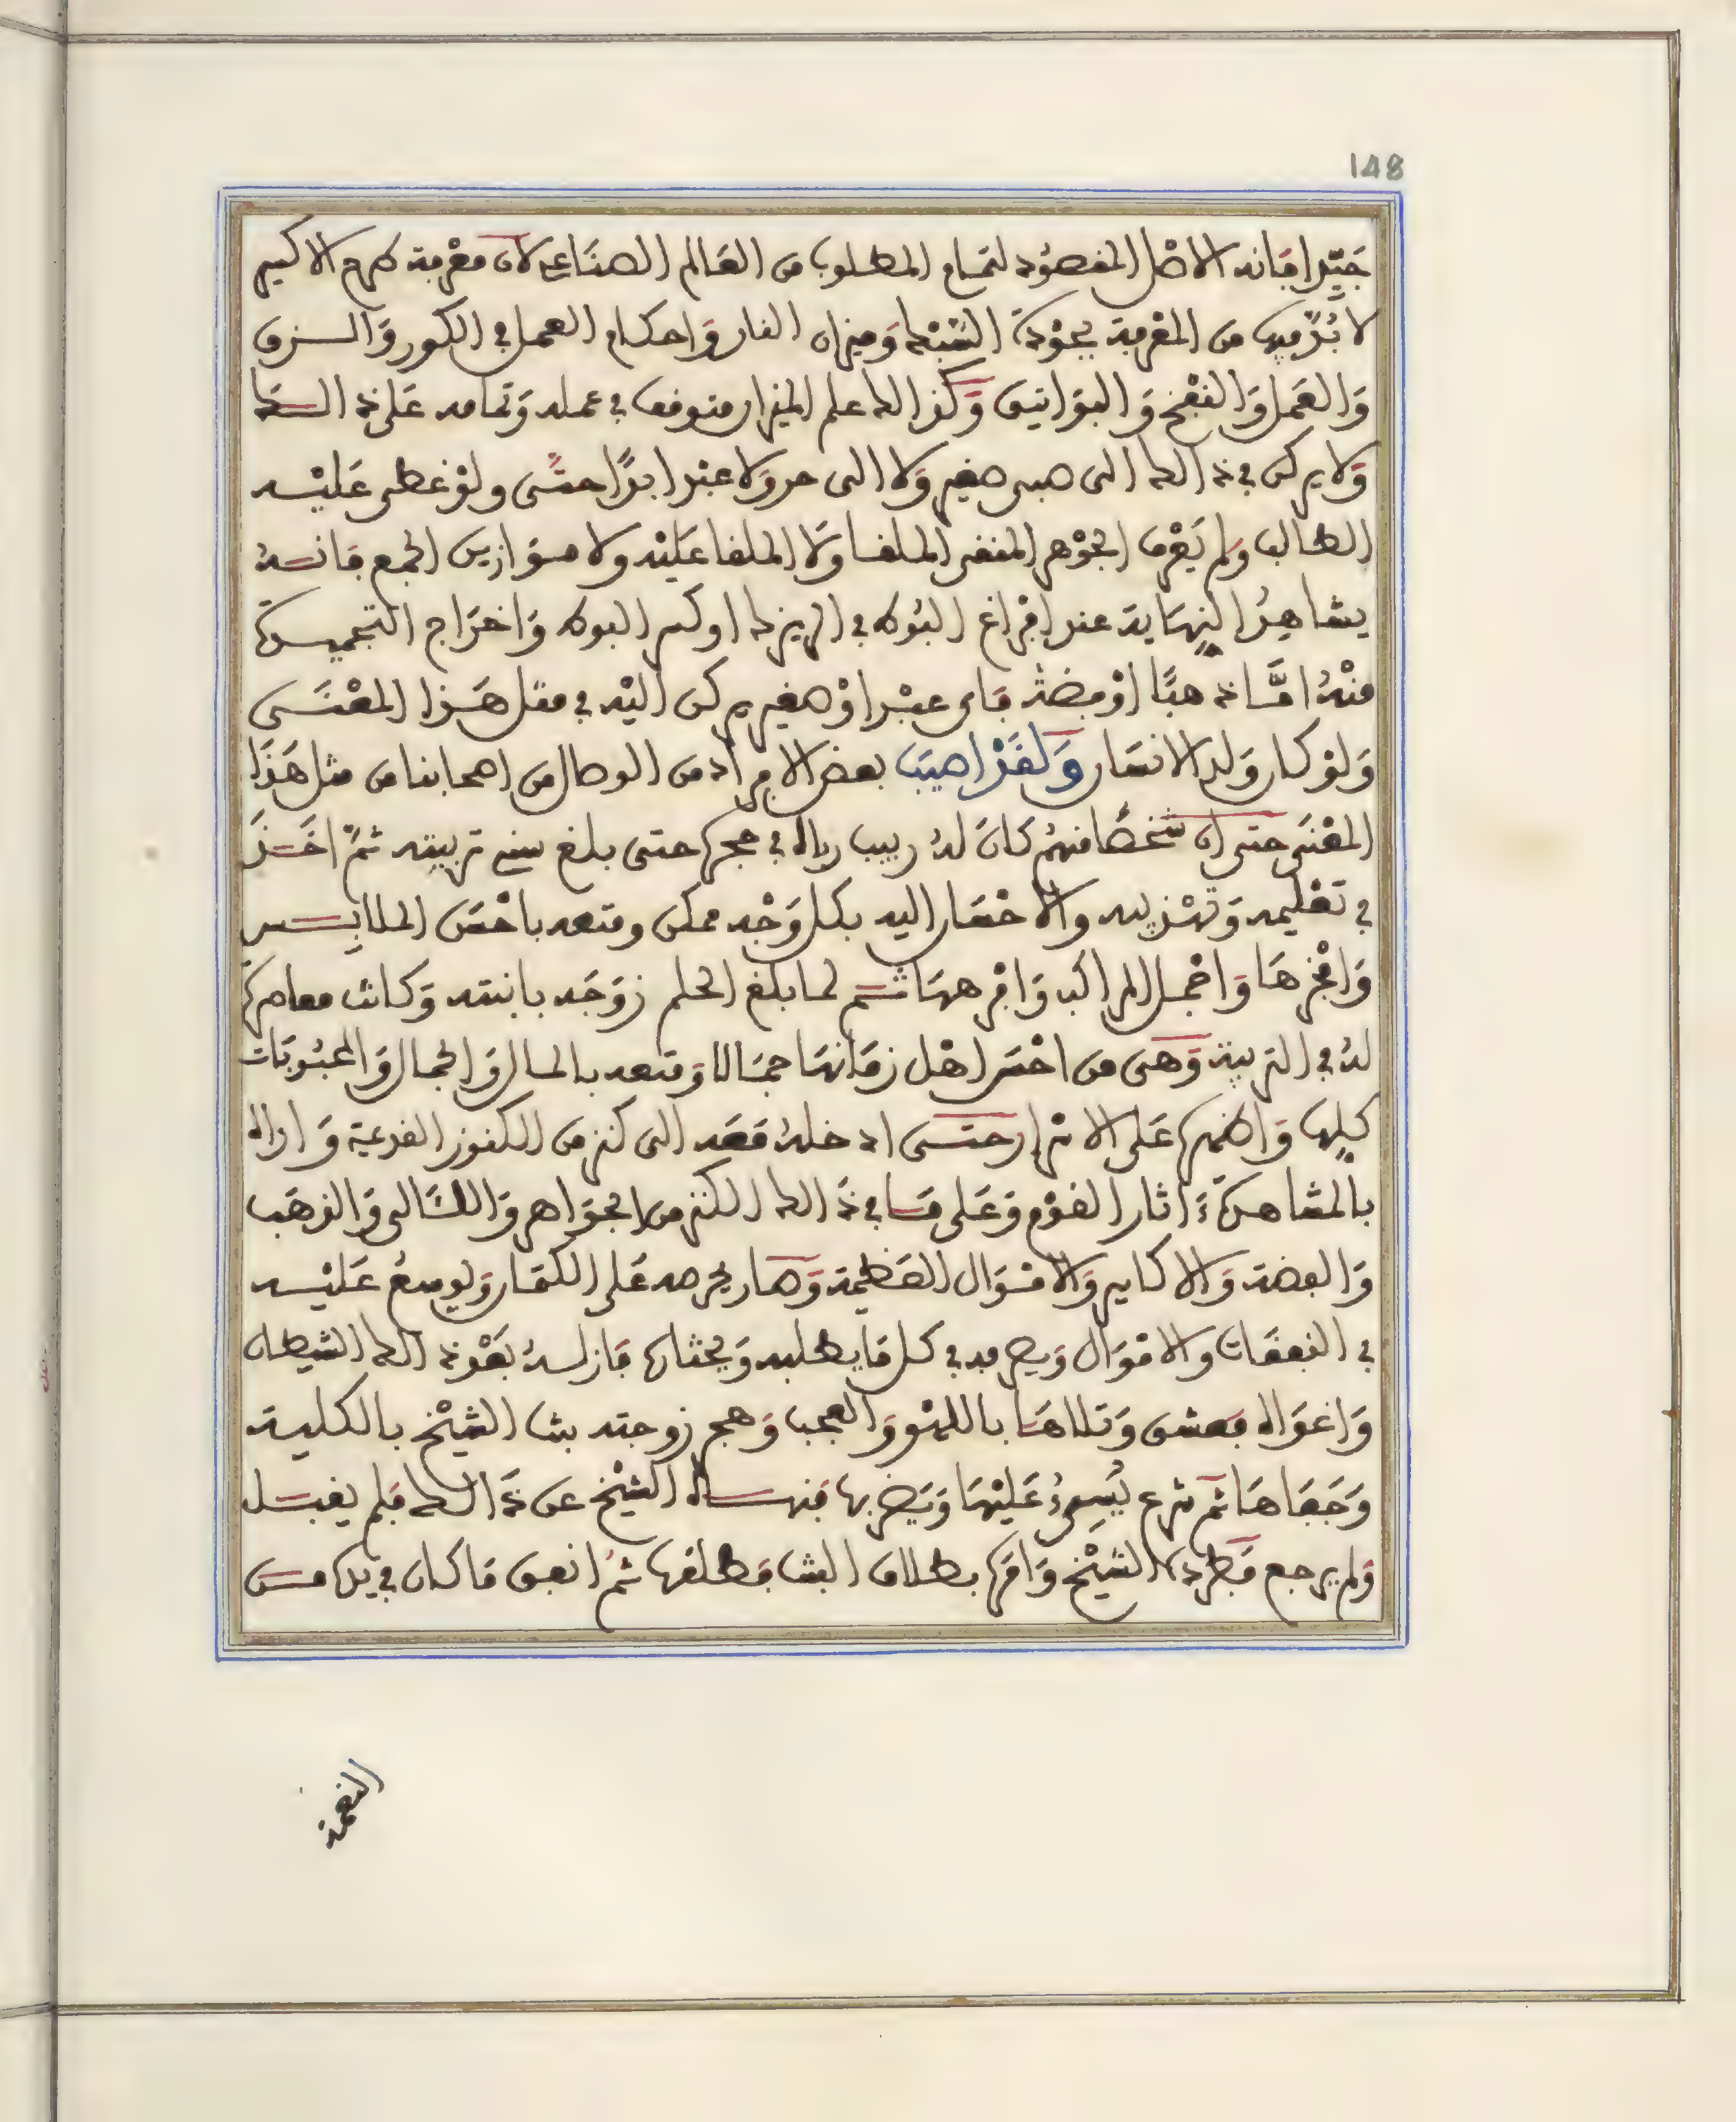 148
جَيّدا فانه الاصْل المقصُود لتمام المطلوب من العَالم الصنَاعى لانّ معْرفة طرح الاكسير
لا بُدّ فيه من المعْرفة بجوْدة السّبْك وَميزان النار وَاحكام العمل في الكور وَالــزق
وَالعَمل وَالنفْخ وَالبوَاتيق وَكذالك علم الميزان متوقف في عمله وَتمامه عَلى ذالــك
وَلا يركن في ذالك الى صبى صغير وَلا الى حر وَلا عبْد ابدًا حتّى ولوْ غطى عَليْـه
الطالب ولم يَعْرف الجوْهر المنقى الملقـا وَلا الملقا عَليْه ولا مـوَازين الجمع فانــهُ
يشاهِدُ النِهَاية عند افْراغ البُوط في الريزك او كسر البوط وَاخرَاج التجميــدة
منْهُ امَّـا ذهبًا اوْ فضة فاى عبْد اوْ صغير يركن اليْه في مثل هَـذا المعْنَــى
وَلوْ كان وَلد الانسَان وَلقَدْ اصيَب بعض الافرَاد من الوصال من اصحابنا من مثل هَذَا
المعْنَى حتى ان شخصًا منهُم كَانَ لهُ ربيب رباه في حجره حتى بلغ سنى تربيته ثمّ اخَــذَ
في تعْليمه وَتهْذيبه والاحْسَان اليه بكل وَجْه ممكن ومتعه باحْسَن الملابِــس
وَافْخرهَا وَاجْمـل المراكب وَافْرههَا ثــم لما بلغ الحلم زوَجَه بابنته وَكانت معاصرة
لهُ في التربية وَهى من احْسَن اهْل زمَانهَا جمَالا وَمتعه بالمال وَالجمال وَالمحبُوبَات
كلها وَاظهره عَلى الاسْرار حتــى ادخلهُ معَه الى كنز من الكنوز القدعية وَاراه
بالمشاهدَة ءاثار القوْم وَعَلى مَــا في ذَالك الكنز من الجوَاهر وَاللئالى وَالذهَب
وَالفضة وَالاكاسير وَالامـوَال العَظيمة وَصَار يحرصه عَلى الكتمَان وَيوسعُ عَليْـه
في النفقَات والامْوَال وَيصرفه في كل مَا يطلبه وَيختاره فازلــهُ بَعْد ذالك الشيطان
وَاغوَاه فعشق وَتلاهَا باللهو وَالعجب وَهجر زوجته بنت الشيْخ بالكلية
وَجَفاهَا ثم شرع يُسِىءُ عَليْهَا وَيضربها فنهــاه الشيْخ عن ذَالـك فلم يقبَـل
وَلم يرجع فَطرده الشيْخ وَامَره بطلاق البنت فطلقها ثمُ انفق مَا كان في يَده مــن
النقمة